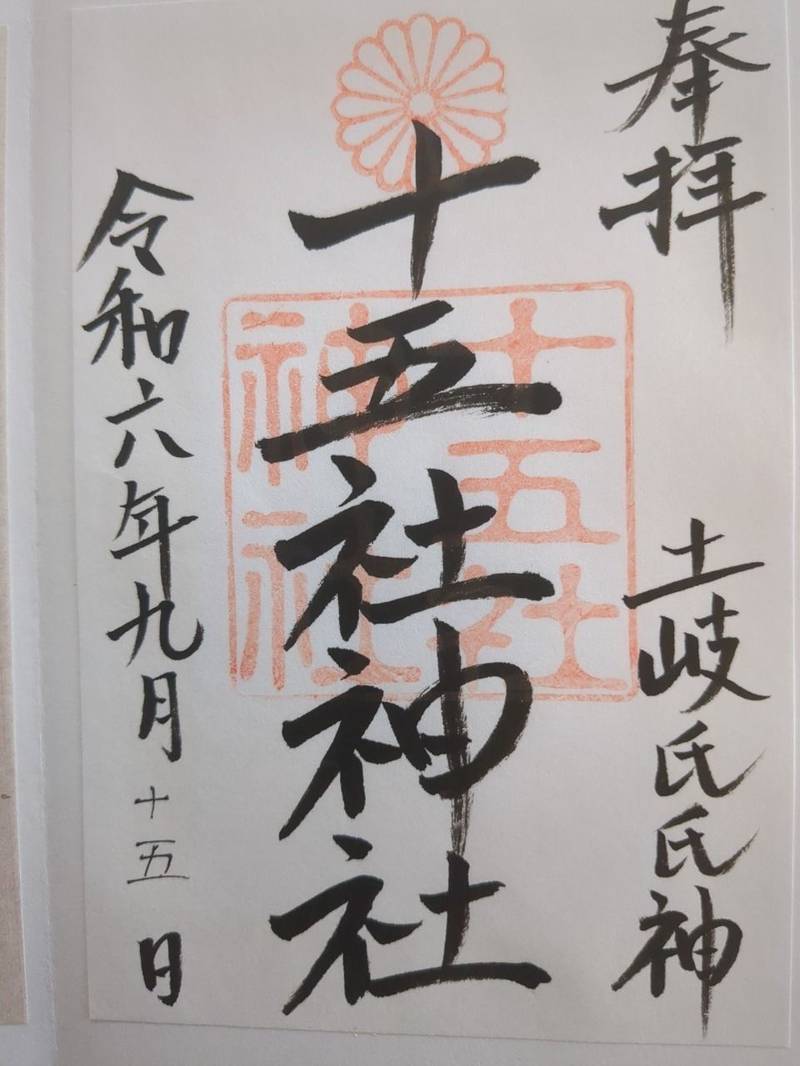 奉拝
土岐氏氏神
十五社神社
十五社
神社
令和六年九月十五日